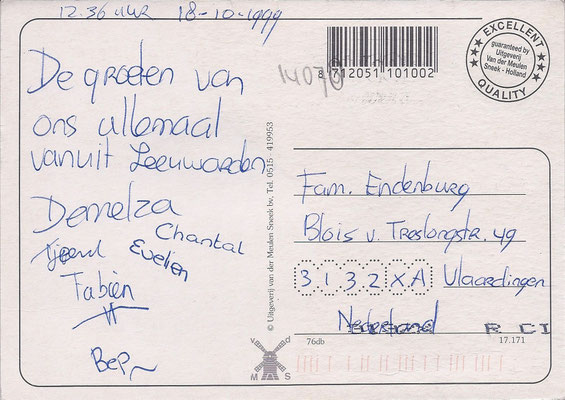 12.36 uur 18-10-1999
De groeten van
ons allemaal
vanuit Leeuwarden
Demelza
Chantal
Tjeerd Evelien
Fabiën
Bep
© Uitgeverij van der Meulen Sneek bv. Tel. 0515 - 419953
14070
8 712051 101002
EXCELLENT
guaranteed by
Uitgeverij
Van der Meulen
Sneek - Holland
QUALITY
Fam. Endenburg
Blois v. Treslongstr. 49
3132 XA Vlaardingen
Nederland
R CI
76db
17.171
v d
M S